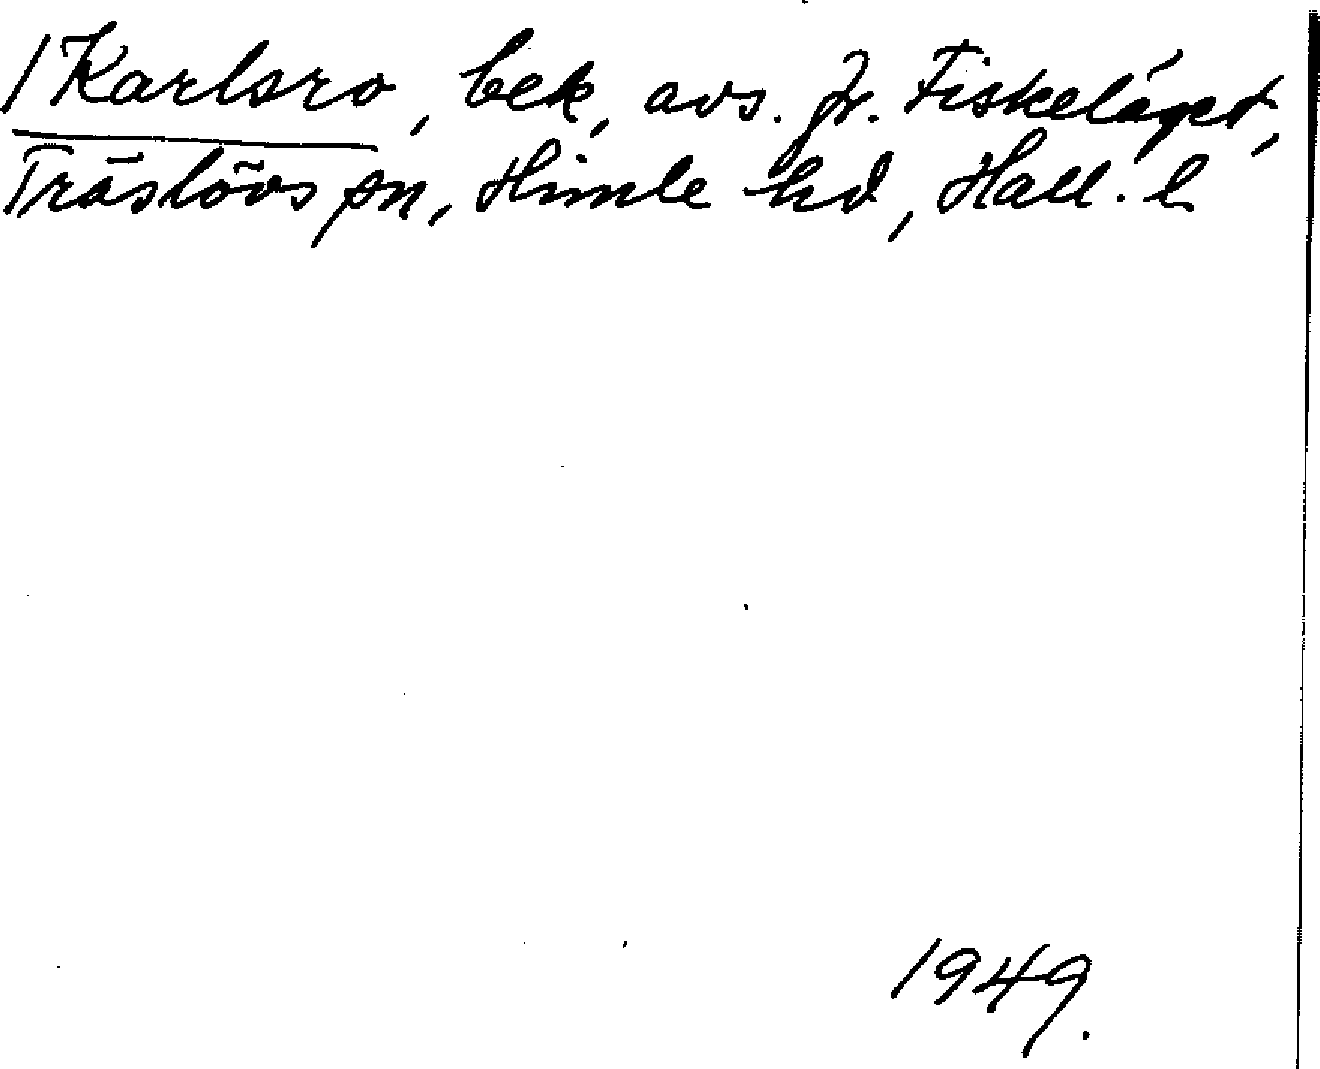 /Karlsro, bek, avs. fr. Fiskeläget,
Träslövs sn, Himle hd, Hall. l
1949.